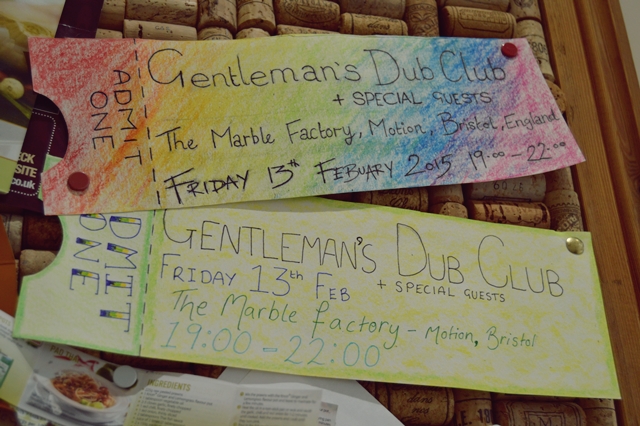 ADMIT
ONE
Gentleman's Dub Club
+ SPECIAL GUESTS
The Marble Factory, Motion, Bristol, England
FRIDAY 13th FEBUARY 2015 19:00-22:00
DMIT
ONE
GENTLEMAN'S DUB CLUB
FRIDAY 13th FEB + SPECIAL GUESTS
The Marble factory - Motion, Bristol
19:00 - 22:00
CK
SITE
co.uk
INGREDIENTS